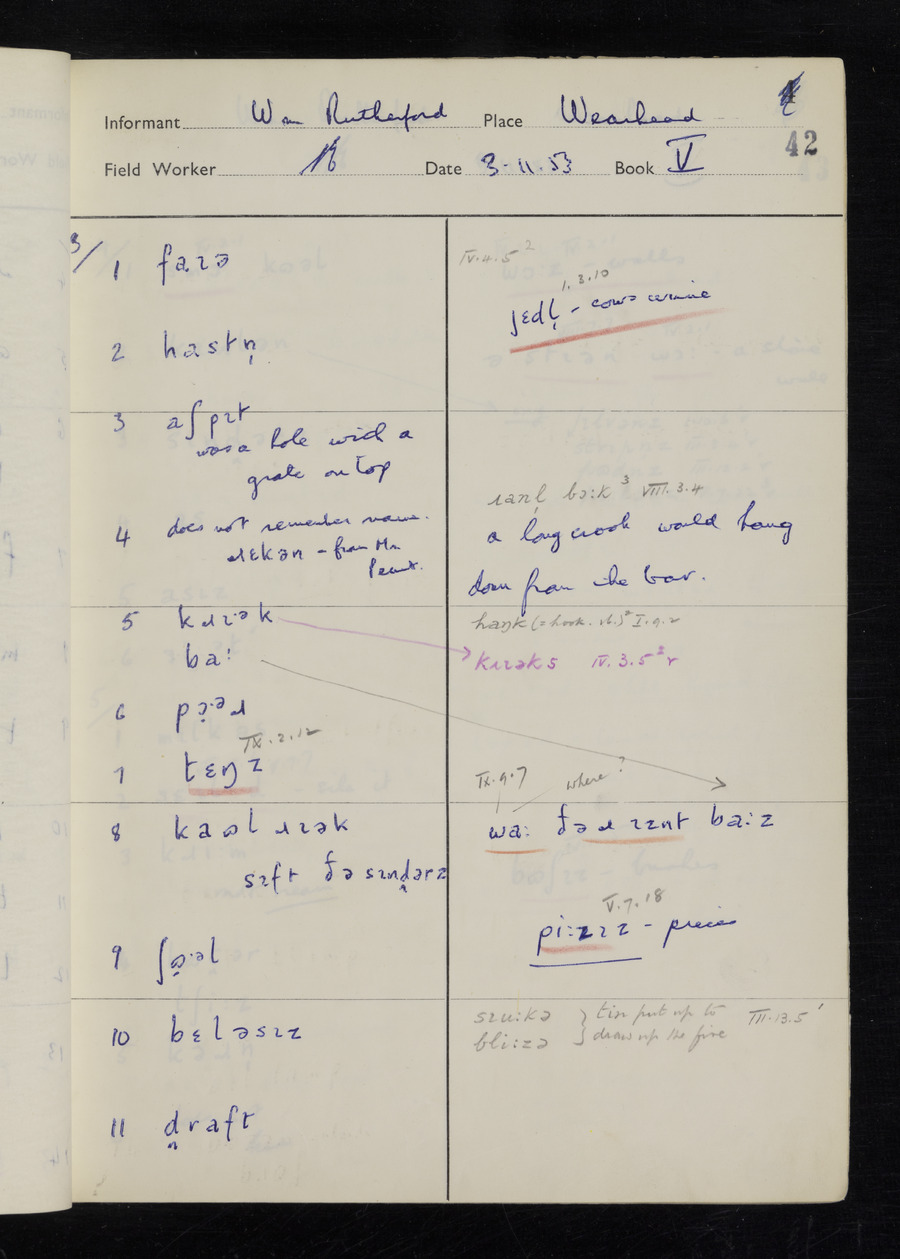 Informant Wm Rutherford Place Wearhead
42
Field Worker Date 3-11-53 Book V
3/
1 faɪə
2 hastn̩
3 aʃpɪt
was a hole with a
grate on top
4 does not remember name.
ɹɛkən - from Mr.
5 kɹɪ·ək
ba:
6
7 tɛŋz
IX.2.12
8 kaɒl ɹɪək
sɪft ðə sɪndərz
9
10 bɛləsɪz
11 draft
IV.4.5²
1.3.10
- cows urine
ɪanl̩ bɔ:k ³ VIII.3.4
a long crook would hang
down from the bar.
haŋk (= hook. vb.)² I.9.2
kɹɪəks IV.3.5² r
IX.9.7 where?
wa: ðəɹ ɪznt ba:z
V.7.18
pi:zɪz - pieces
bli:zə } tin put up to draw up the fire III.13.5¹